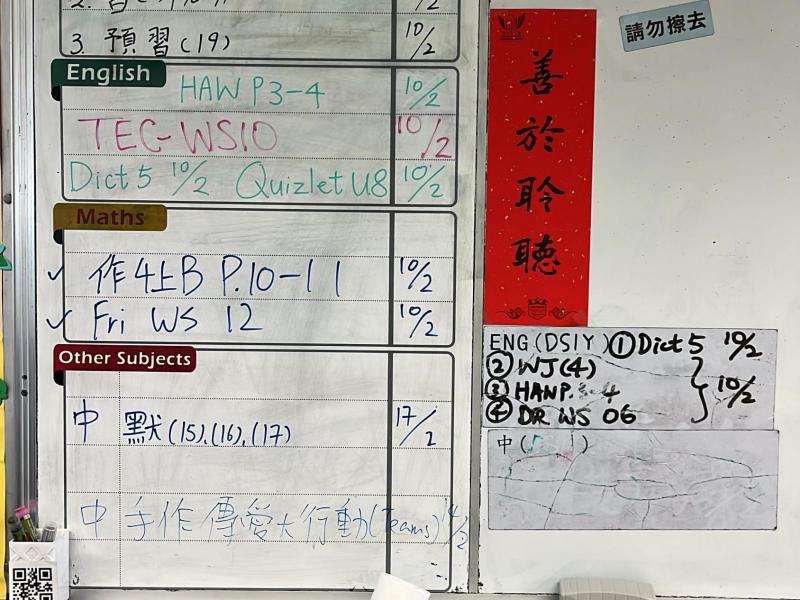 3. 預習(19) 10/2
English
HAW P3-4 10/2
TEC-WS10 10/2
Dict 5 10/2 Quizlet U8 10/2
Maths
✓ 作4上B P.10-11 10/2
✓ Fri WS 12 10/2
Other Subjects
中 默(15),(16),(17) 17/2
中 手作 傳愛大行動(Teams) 14/2
善於聆聽
請勿擦去
ENG(DSIY) ① Dict 5 10/2
② WJ(4)
③ HAW P. 3-4 10/2
④ DR WS 06
中(